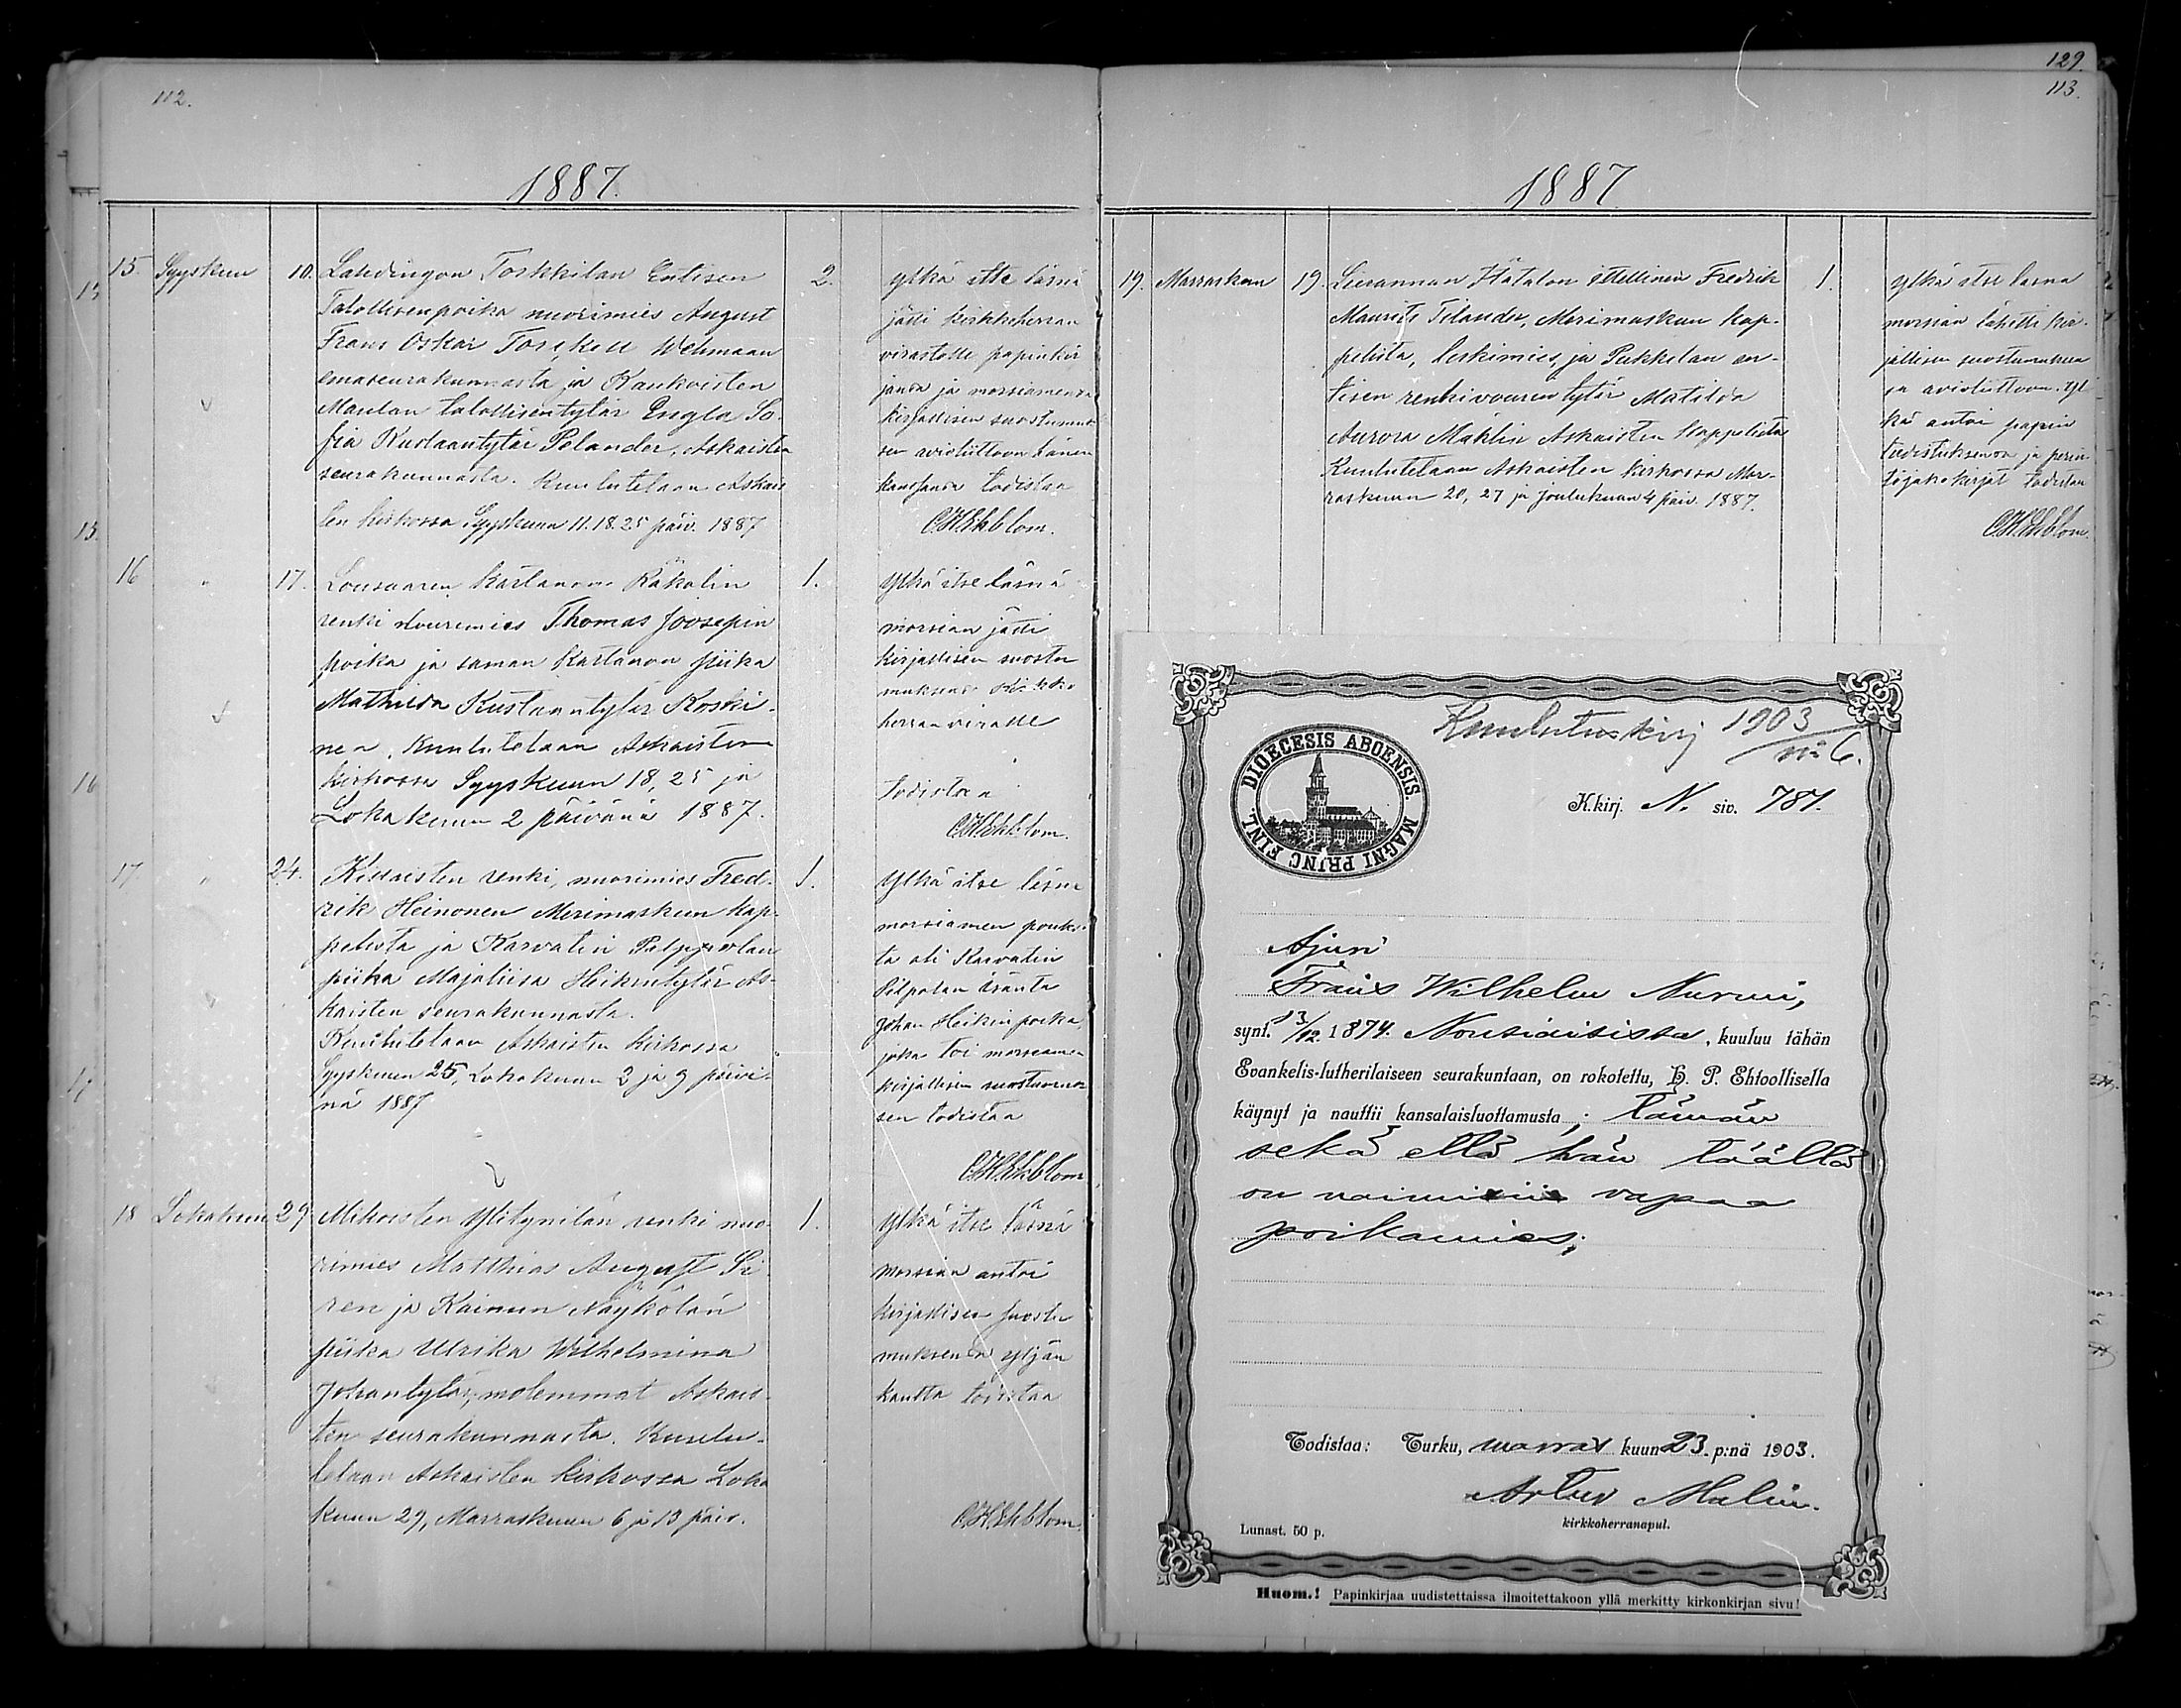 112.
1887.
15. Syyskuun 10. Lahdingon Torkkilan Entisen
Talollisenpoika nuorimies August
Frans Oskar Torckell Wehmaan
emäseurakunnasta ja Kankoisten
Maulan talollisentytär Engla So-
fia Kustaantytär Pelander, Askaisten
seurakunnasta. Kuulutetaan Askais
ten kirkossa Syyskuun 11. 18. 25 päiv. 1887
2.
Ylkä itse läsnä
jätti kirkkoherran
virastolle papinkir
jansa ja morsiamensa
kirjallisen suostumuk
sen avioliittoon hänen
kanssansa todistaa
C.H.Ekblom.
16 " 17. Lousaaren kartanon Räkälin
renki nuorimies Thomas Joosepin
poika ja saman Kartanon piika
Mathilda Kustaantytär Koski-
nen. Kuulutetaan Askaisten
kirkossa Syyskuun 18, 25 ja
Lokakuun 2 päivänä 1887.
1.
Ylkä itse läsnä
morsian jätti
kirjallisen suostu
muksensa kirkko
herran viralle
todistaa
C.H.Ekblom.
17 " 24. Killaisten renki, nuorimies Fred-
rik Heinonen Merimaskun kap-
pelista ja Karvatin
piika Majaliisa Heikintytär As-
kaisten seurakunnasta.
Kuulutetaan Askaisten kirkossa
Syyskuun 25, Lokakuun 2 ja 9 päivi-
nä 1887
1.
Ylkä itse läsnä
morsiamen puoles-
ta oli Karvatin
Pilpolan isäntä
Johan Heikinpoika,
joka toi morsiamen
kirjallisen suostumuk
sen todistaa
C.H.Ekblom
18 Lokakuun 29 Mikoisten Ylitynilän renki nuo-
rimies Matthias August Si-
ren ja Kainun Näykölän
piika Ulrika Wilhelmina
Johantytär, molemmat Askais-
ten seurakunnasta. Kuulu-
tetaan Askaisten kirkossa Loka
kuun 29, Marraskuun 6 ja 13 päiv.
1.
Ylkä itse läsnä
morsian antoi
kirjallisen suostu
muksensa yljän
kautta todistaa
C.H.Ekblom.
129.
113.
1887
19. Marraskuun 19. Lierannan Hätalon itsellinen Fredrik
Maurits Tilander, Merimaskun kap-
pelista, leskimies, ja Pukkilan en-
tisen renkivouvin tytär Matilda
Aurora Mahlin Askaisten kappelista
Kuulutetaan Askaisten kirkossa Mar-
raskuun 20, 27 ja Joulukuun 4 päiv. 1887.
1.
Ylkä itse läsnä
morsian lähetti kir-
jallisen suostumuksen
sa avioliittoon. Yl
kä antoi papin
todistuksensa ja perin
töjakokirjat todistaa
C.H.Ekblom.
Kuulutuskirj 1903
n:o 6.
DIOECESIS ABOENSIS. MAGNI PRINC FINL.
K.kirj. N. siv. 781.
Ajuri
Frans Wilhelm Nurmi,
synt. 13/12 1874. Nousiaisissa, kuuluu tähän
Evankelis-lutherilaiseen seurakuntaan, on rokotettu, H. P. Ehtoollisella
käynyt ja nauttii kansalaisluottamusta,; tämän
sekä että hän täällä
on naimisiin vapaa
poikamies;
Todistaa: Turku, marras kuun 23. p:nä 1903.
Artur Malin.
kirkkoherranapul.
Lunast. 50 p.
Huom.! Papinkirjaa uudistettaissa ilmoitettakoon yllä merkitty kirkonkirjan sivu!